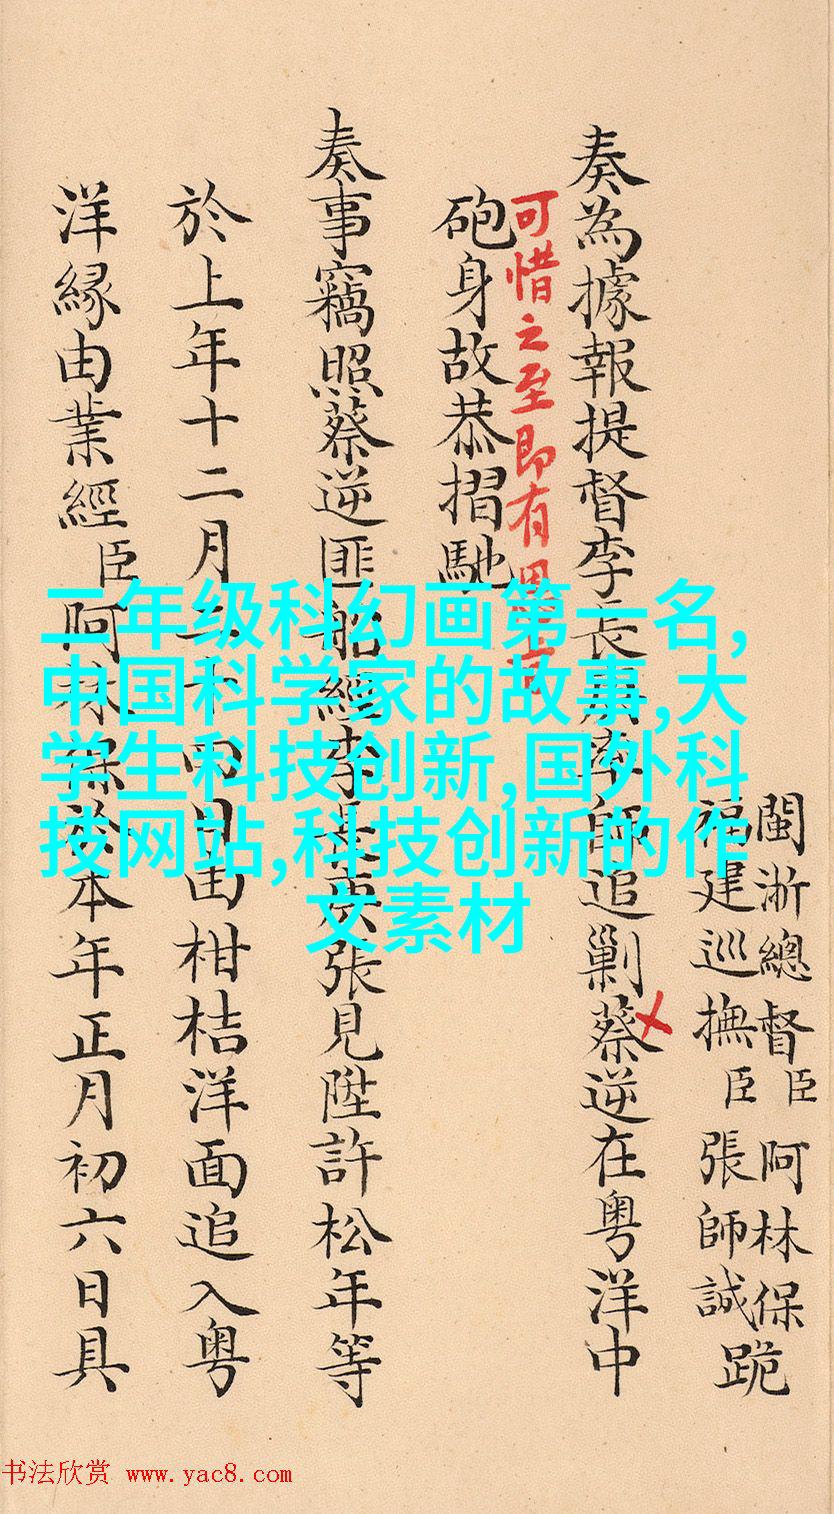 閩浙總督臣阿林保
福建巡撫臣張師誠
跪
奏為據報提督李長庚率師追剿蔡逆在粵洋中
可惜之至即有恩旨
砲身故恭摺馳
奏事竊照蔡逆匪船經李長庚張見陞許松年等
於上年十二月二十四日由柑桔洋面追入粵
洋緣由業經臣阿林保於本年正月初六日具
二年级科幻画第一名,
中国科学家的故事,大
学生科技创新,国外科
技网站,科技创新的作
文素材
书法欣赏 www.yac8.com